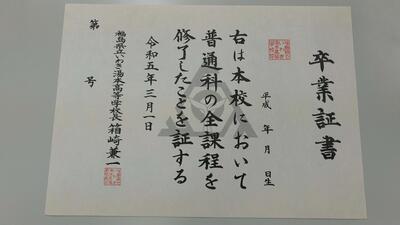 卒業証書
平成　年　月　日生
右は本校において
普通科の全課程を
修了したことを証する
令和五年三月一日
福島県立いわき湯本高等学校長　箱崎兼一
第　号